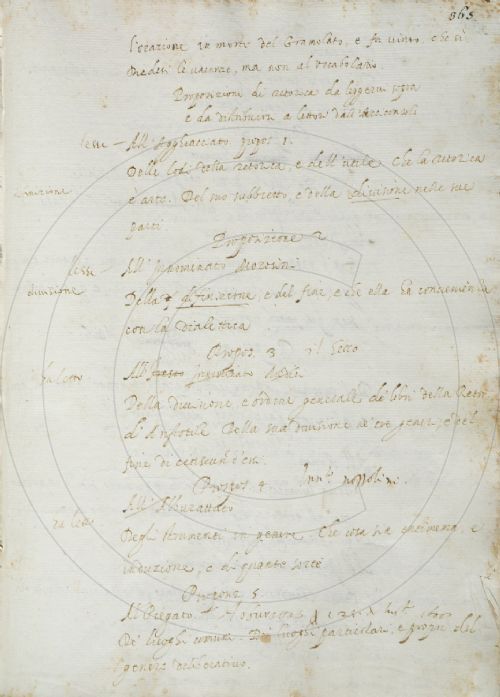 363
l'orazione in morte del Gramolato, e fu vinto, che si
diedesi le vacanze, ma non al vocabolario
Proposizioni di retorica da leggersi
e da distribuirsi a lettori dall'Arciconsolo
lesse — All'Agghiacciato propos 1.
Delle lodi della retorica, e dell'utile che la retorica
è arte. Del suo subbietto, e della divisione nelle sue
parti
Proposizione 2
lesse — All'Innominato
divisione
Della definizione, e del fine, e che ella ha convenienza
con la Dialettica
Propos. 3 il Secco
ha letto
Della divisione, e ordine generale de' libri della Retor.
d'Aristotile Della sua divisione ne' tre generi, e del
fine di ciascun d'essi.
Propos. 4
ha letto
All'Abburattato
Degli strumenti in genere, che cosa sia entimema, e
induzione, e di quante sorte
Propoz. 5
Al Piegato
De' luoghi comuni. De' luoghi particolari, e propri del
genere deliberativo.